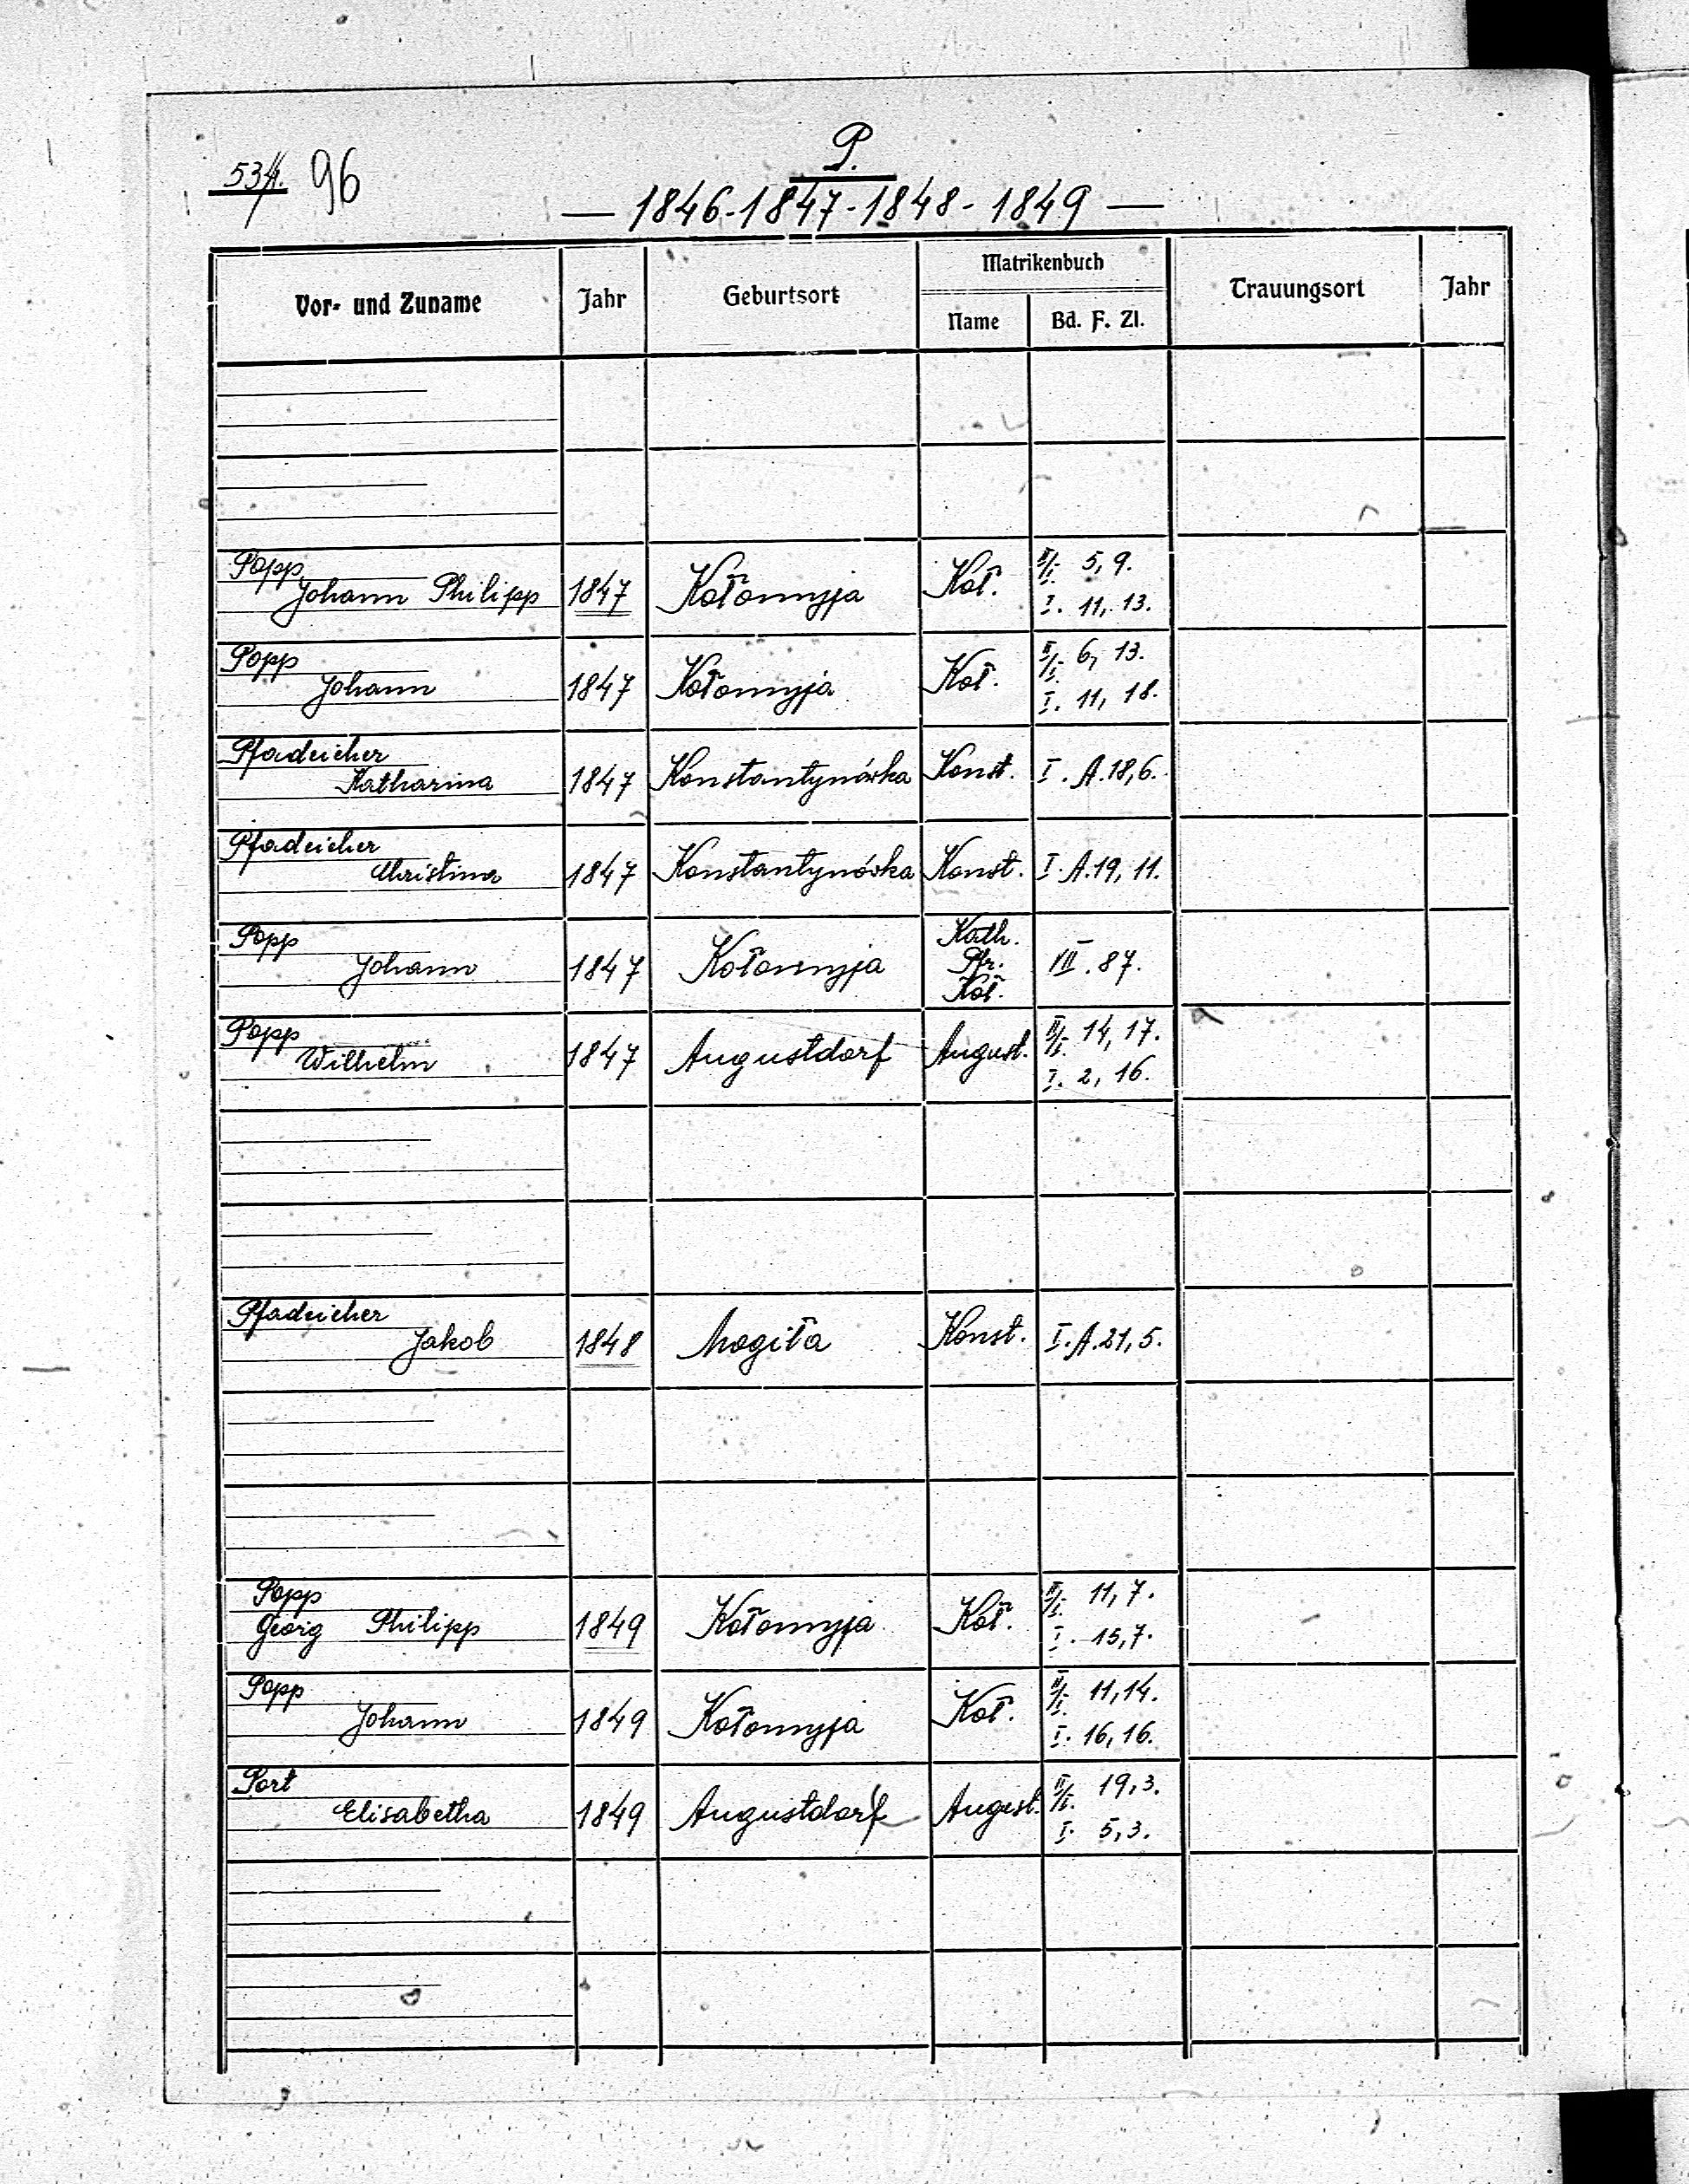 534. 96
P.
— 1846-1847-1848-1849 —
Vor- und Zuname Jahr Geburtsort Matrikenbuch Trauungsort Jahr
Name Bd. F. Zl.
Popp II/I. 5, 9.
Johann Philipp 1847 Kołomyja Koł. I. 11, 13.
Popp II/I. 6, 13.
Johann 1847 Kołomyja Koł. I. 11, 18.
Pfadeicher
Katharina 1847 Konstantynówka Konst. I. A. 18, 6.
Pfadeicher
Christina 1847 Konstantynówka Konst. I. A. 19, 11.
Popp Kath.
Johann 1847 Kołomyja Pfr. VII. 87.
Koł.
Popp II/I. 14, 17.
Wilhelm 1847 Augustdorf August. I. 2, 16.
Pfadeicher
Jakob 1848 Mogiła Konst. I. A. 21, 5.
Popp II/I. 11, 7.
Georg Philipp 1849 Kołomyja Koł. I. 15, 7.
Popp II/I. 11, 14.
Johann 1849 Kołomyja Koł. I. 16, 16.
Port II/I. 19, 3.
Elisabetha 1849 Augustdorf August. I. 5, 3.